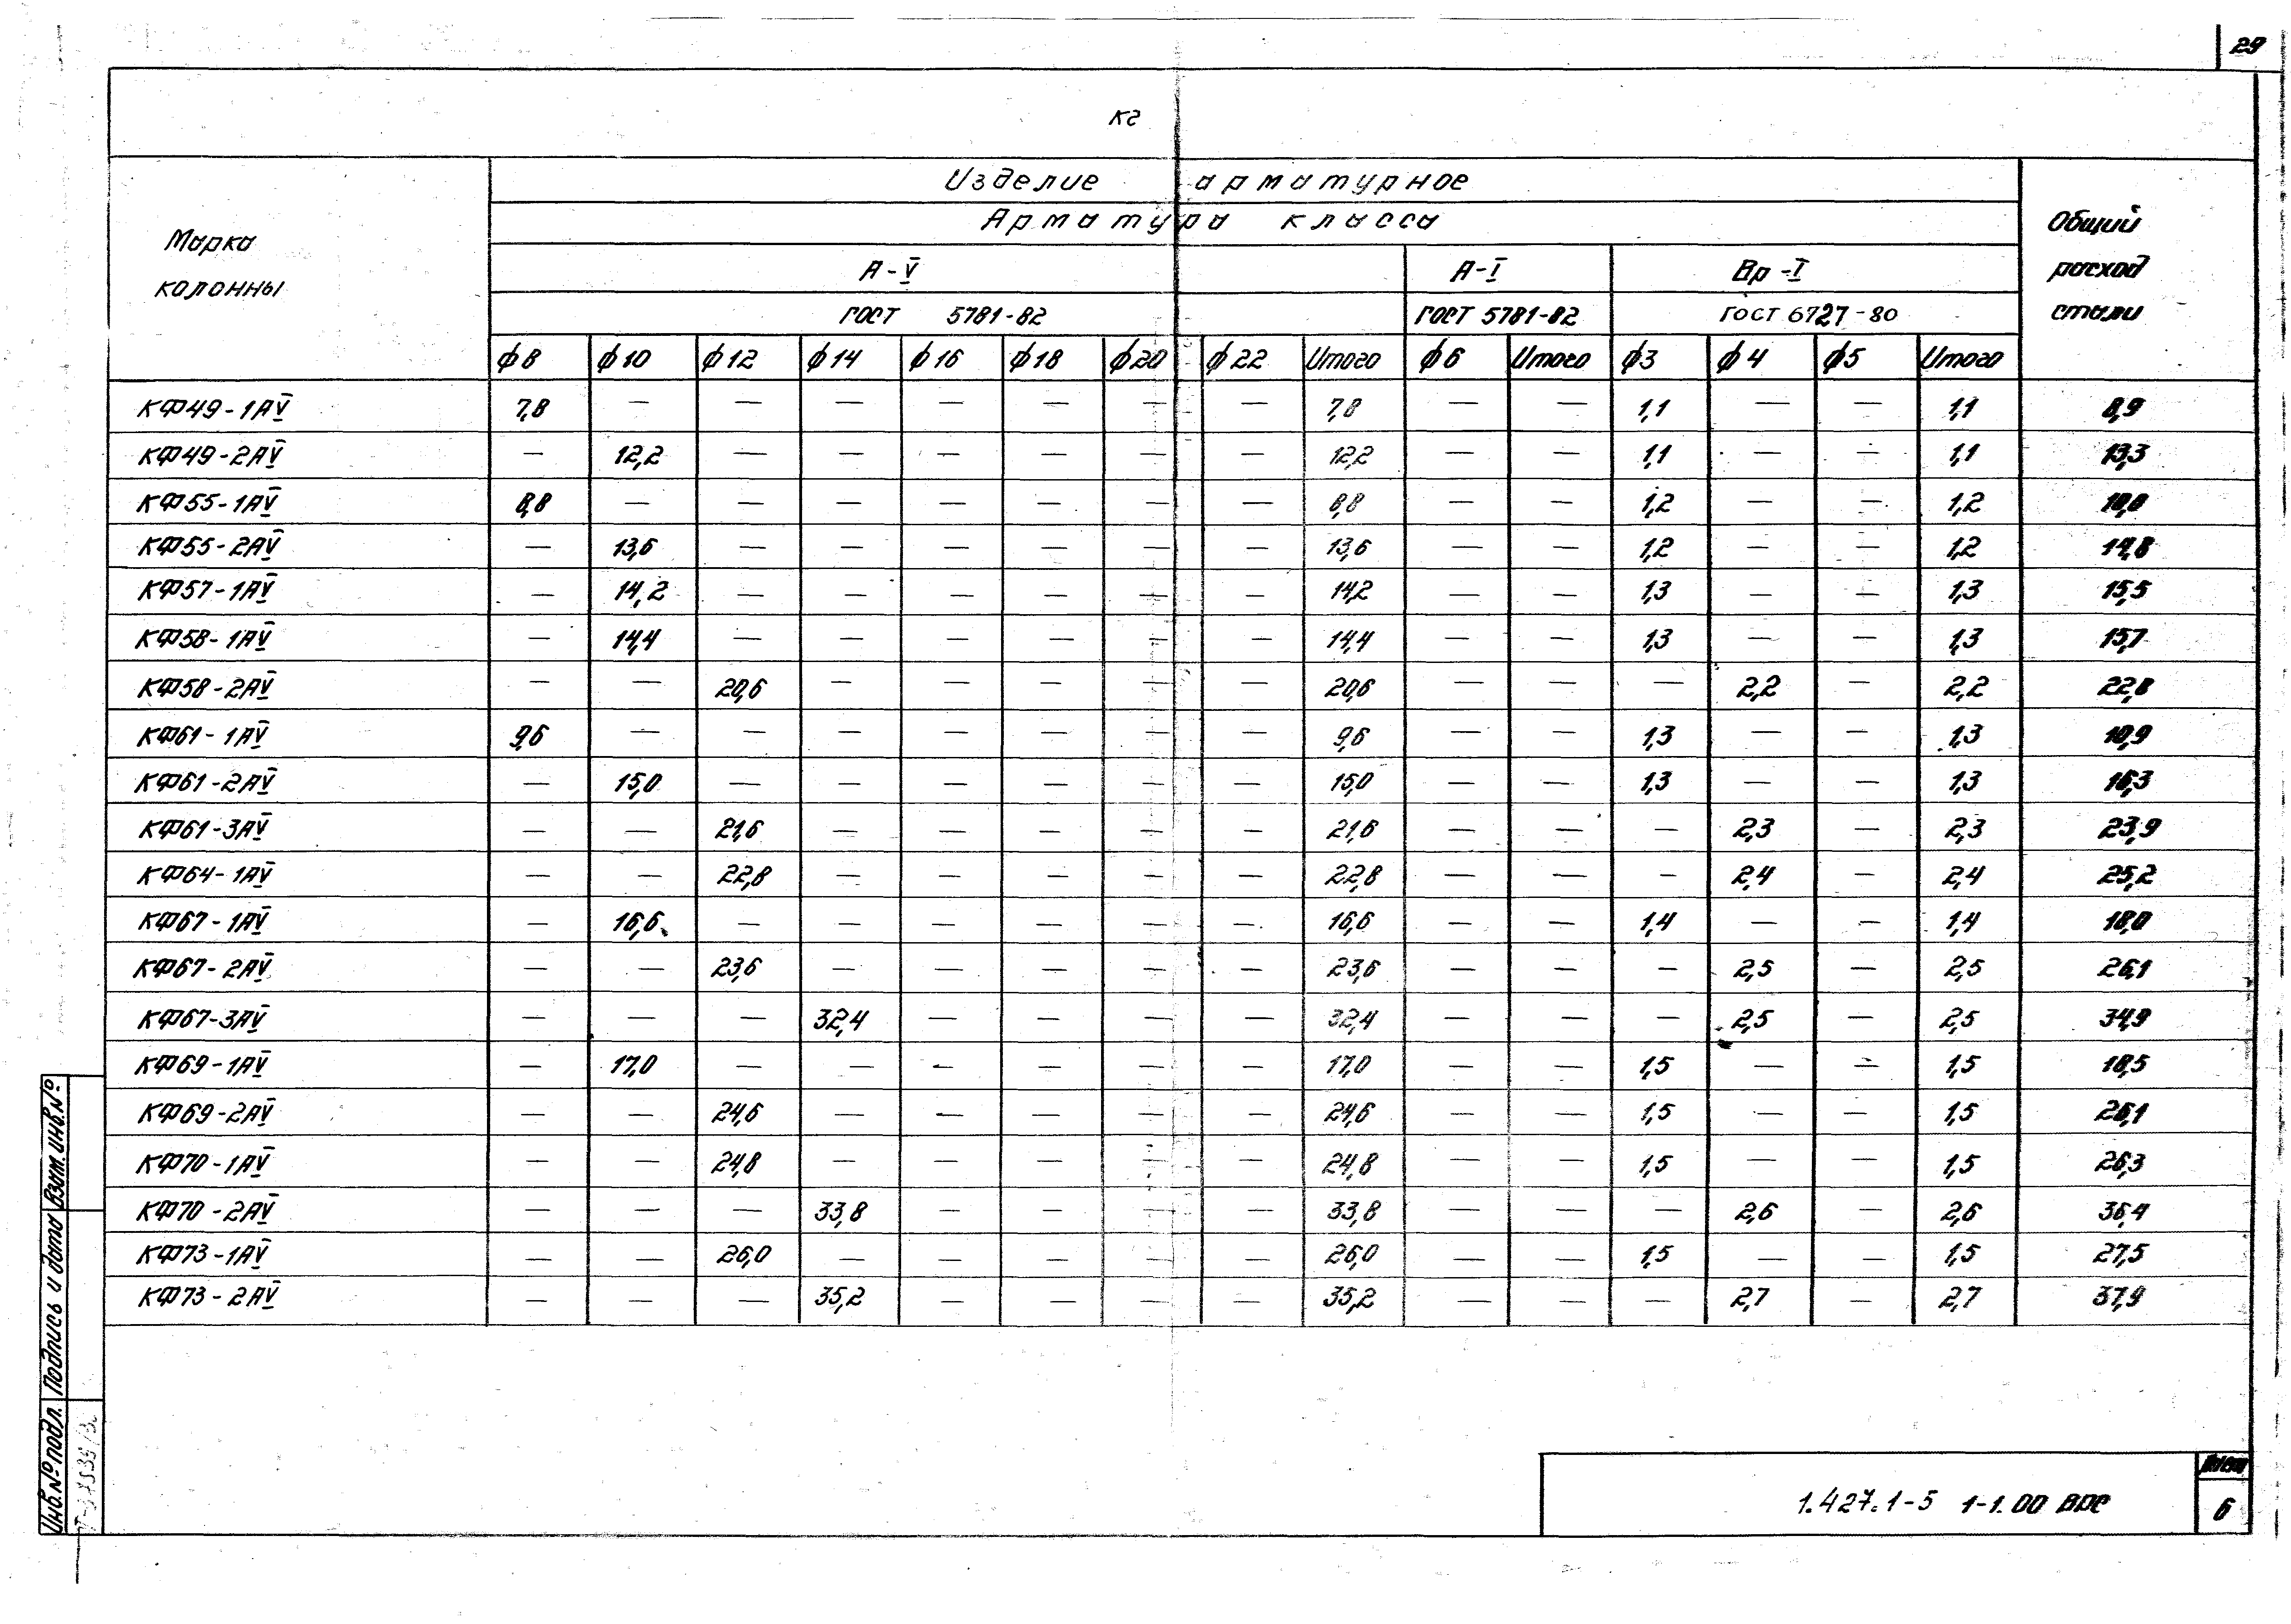 29
кг
Марка колонны
Изделие арматурное
Арматура класса
Общий расход стали
А-V
А-I
Вр-I
ГОСТ 5781-82
ГОСТ 5781-82
ГОСТ 6727-80
ф8 ф10 ф12 ф14 ф16 ф18 ф20 ф22 Итого ф6 Итого ф3 ф4 ф5 Итого
КФ49-1АV 7,8 — — — — — — — 7,8 — — 1,1 — — 1,1 8,9
КФ49-2АV — 12,2 — — — — — — 12,2 — — 1,1 — — 1,1 13,3
КФ55-1АV 8,8 — — — — — — — 8,8 — — 1,2 — — 1,2 10,0
КФ55-2АV — 13,6 — — — — — — 13,6 — — 1,2 — — 1,2 14,8
КФ57-1АV — 14,2 — — — — — — 14,2 — — 1,3 — — 1,3 15,5
КФ58-1АV — 14,4 — — — — — — 14,4 — — 1,3 — — 1,3 15,7
КФ58-2АV — — 20,6 — — — — — 20,6 — — — 2,2 — 2,2 22,8
КФ61-1АV 9,6 — — — — — — — 9,6 — — 1,3 — — 1,3 10,9
КФ61-2АV — 15,0 — — — — — — 15,0 — — 1,3 — — 1,3 16,3
КФ61-3АV — — 21,6 — — — — — 21,6 — — — 2,3 — 2,3 23,9
КФ64-1АV — — 22,8 — — — — — 22,8 — — — 2,4 — 2,4 25,2
КФ67-1АV — 16,6 — — — — — — 16,6 — — 1,4 — — 1,4 18,0
КФ67-2АV — — 23,6 — — — — — 23,6 — — — 2,5 — 2,5 26,1
КФ67-3АV — — — 32,4 — — — — 32,4 — — — 2,5 — 2,5 34,9
КФ69-1АV — 17,0 — — — — — — 17,0 — — 1,5 — — 1,5 18,5
КФ69-2АV — — 24,6 — — — — — 24,6 — — 1,5 — — 1,5 26,1
КФ70-1АV — — 24,8 — — — — — 24,8 — — 1,5 — — 1,5 26,3
КФ70-2АV — — — 33,8 — — — — 33,8 — — — 2,6 — 2,6 36,4
КФ73-1АV — — 26,0 — — — — — 26,0 — — 1,5 — — 1,5 27,5
КФ73-2АV — — — 35,2 — — — — 35,2 — — — 2,7 — 2,7 37,9
Инв.№подл. Подпись и дата Взам.инв.№
1.427.1-5 1-1.00 ВРС
Лист
6